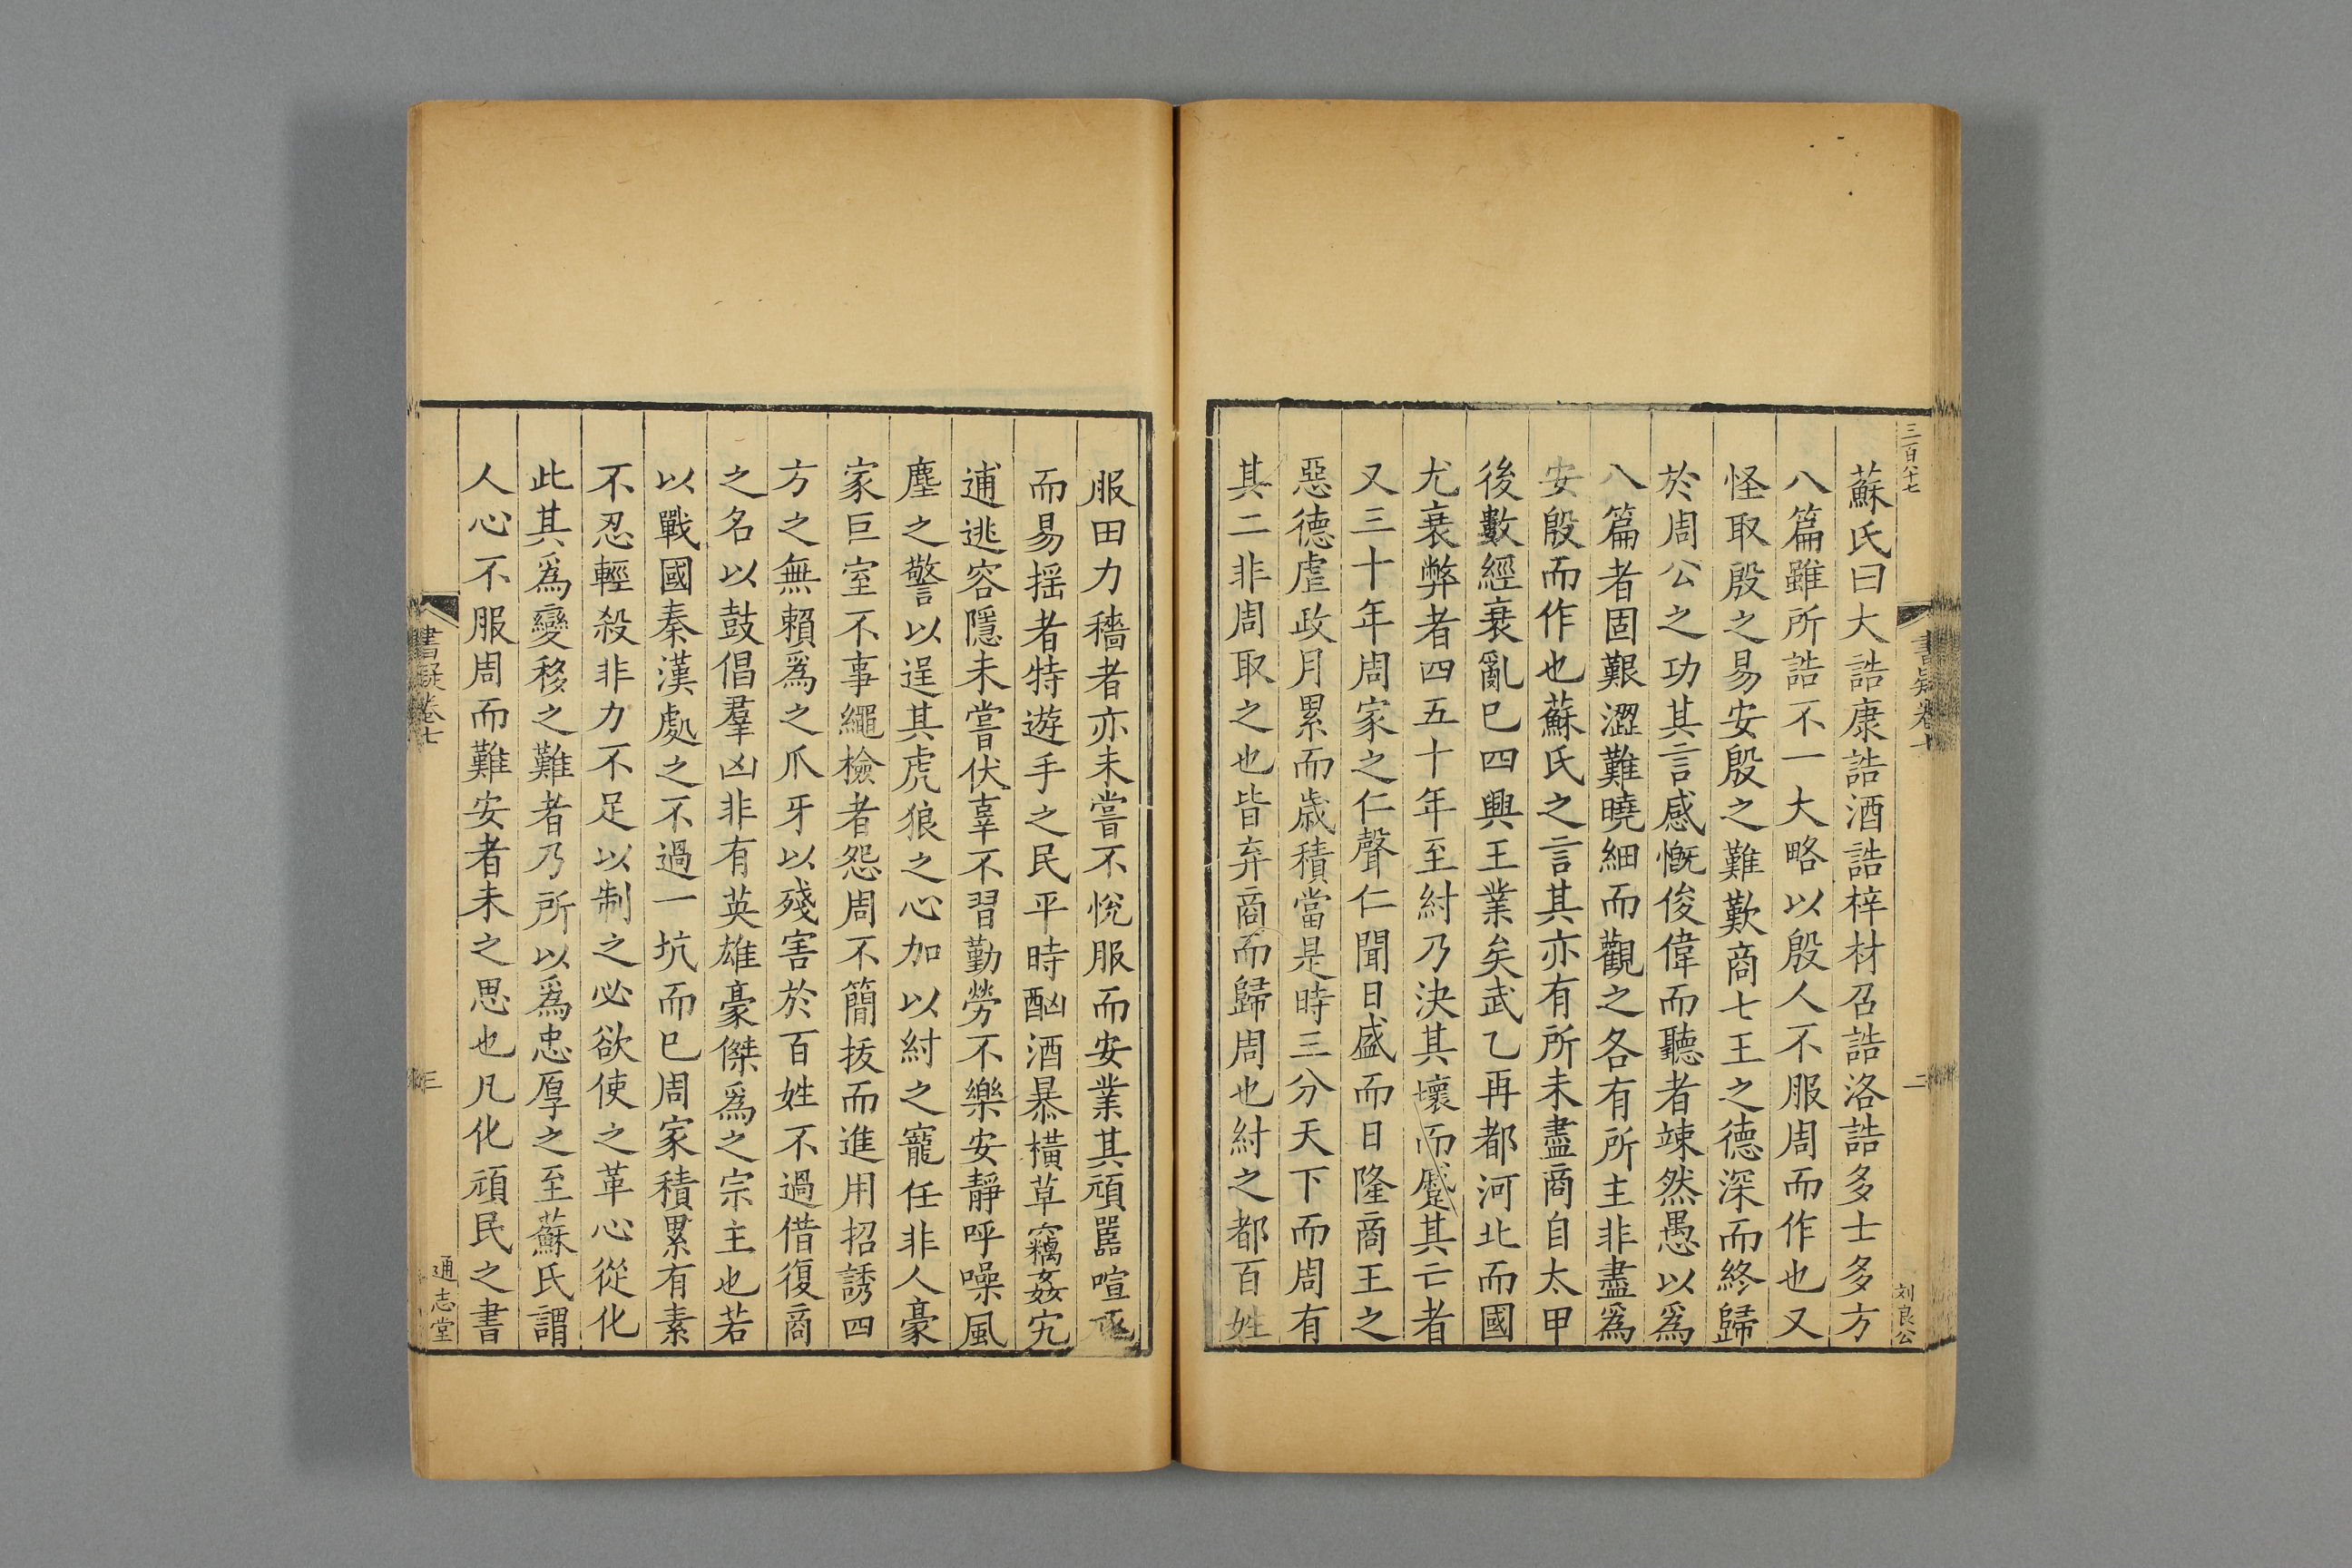 三百八十七
書疑卷七
二
刘良公
蘇氏曰大誥康誥酒誥梓材召誥洛誥多士多方
八篇雖所誥不一大略以殷人不服周而作也又
怪取殷之易安殷之難歎商七王之德深而終歸
於周公之功其言感慨俊偉而聽者竦然愚以爲
八篇者固艱澀難曉細而觀之各有所主非盡爲
安殷而作也蘇氏之言其亦有所未盡商自太甲
後數經衰亂已四興王業矣武乙再都河北而國
尤衰弊者四五十年至紂乃決其壞而蹙其亡者
又三十年周家之仁聲仁聞日盛而日隆商王之
惡德虐政月累而歲積當是時三分天下而周有
其二非周取之也皆弃商而歸周也紂之都百姓
服田力穡者亦未嘗不悅服而安業其頑嚚喧
而易揺者特遊手之民平時酗酒暴橫草竊姦宄
逋逃容隱未嘗伏辜不習勤勞不樂安靜呼噪風
塵之警以逞其虎狼之心加以紂之寵任非人豪
家巨室不事繩檢者怨周不簡拔而進用招誘四
方之無賴爲之爪牙以殘害於百姓不過借復商
之名以鼓倡羣凶非有英雄豪傑爲之宗主也若
以戰國秦漢處之不過一坑而已周家積累有素
不忍輕殺非力不足以制之必欲使之革心從化
此其爲變移之難者乃所以爲忠厚之至蘇氏謂
人心不服周而難安者未之思也凡化頑民之書
書疑卷七
三
通志堂